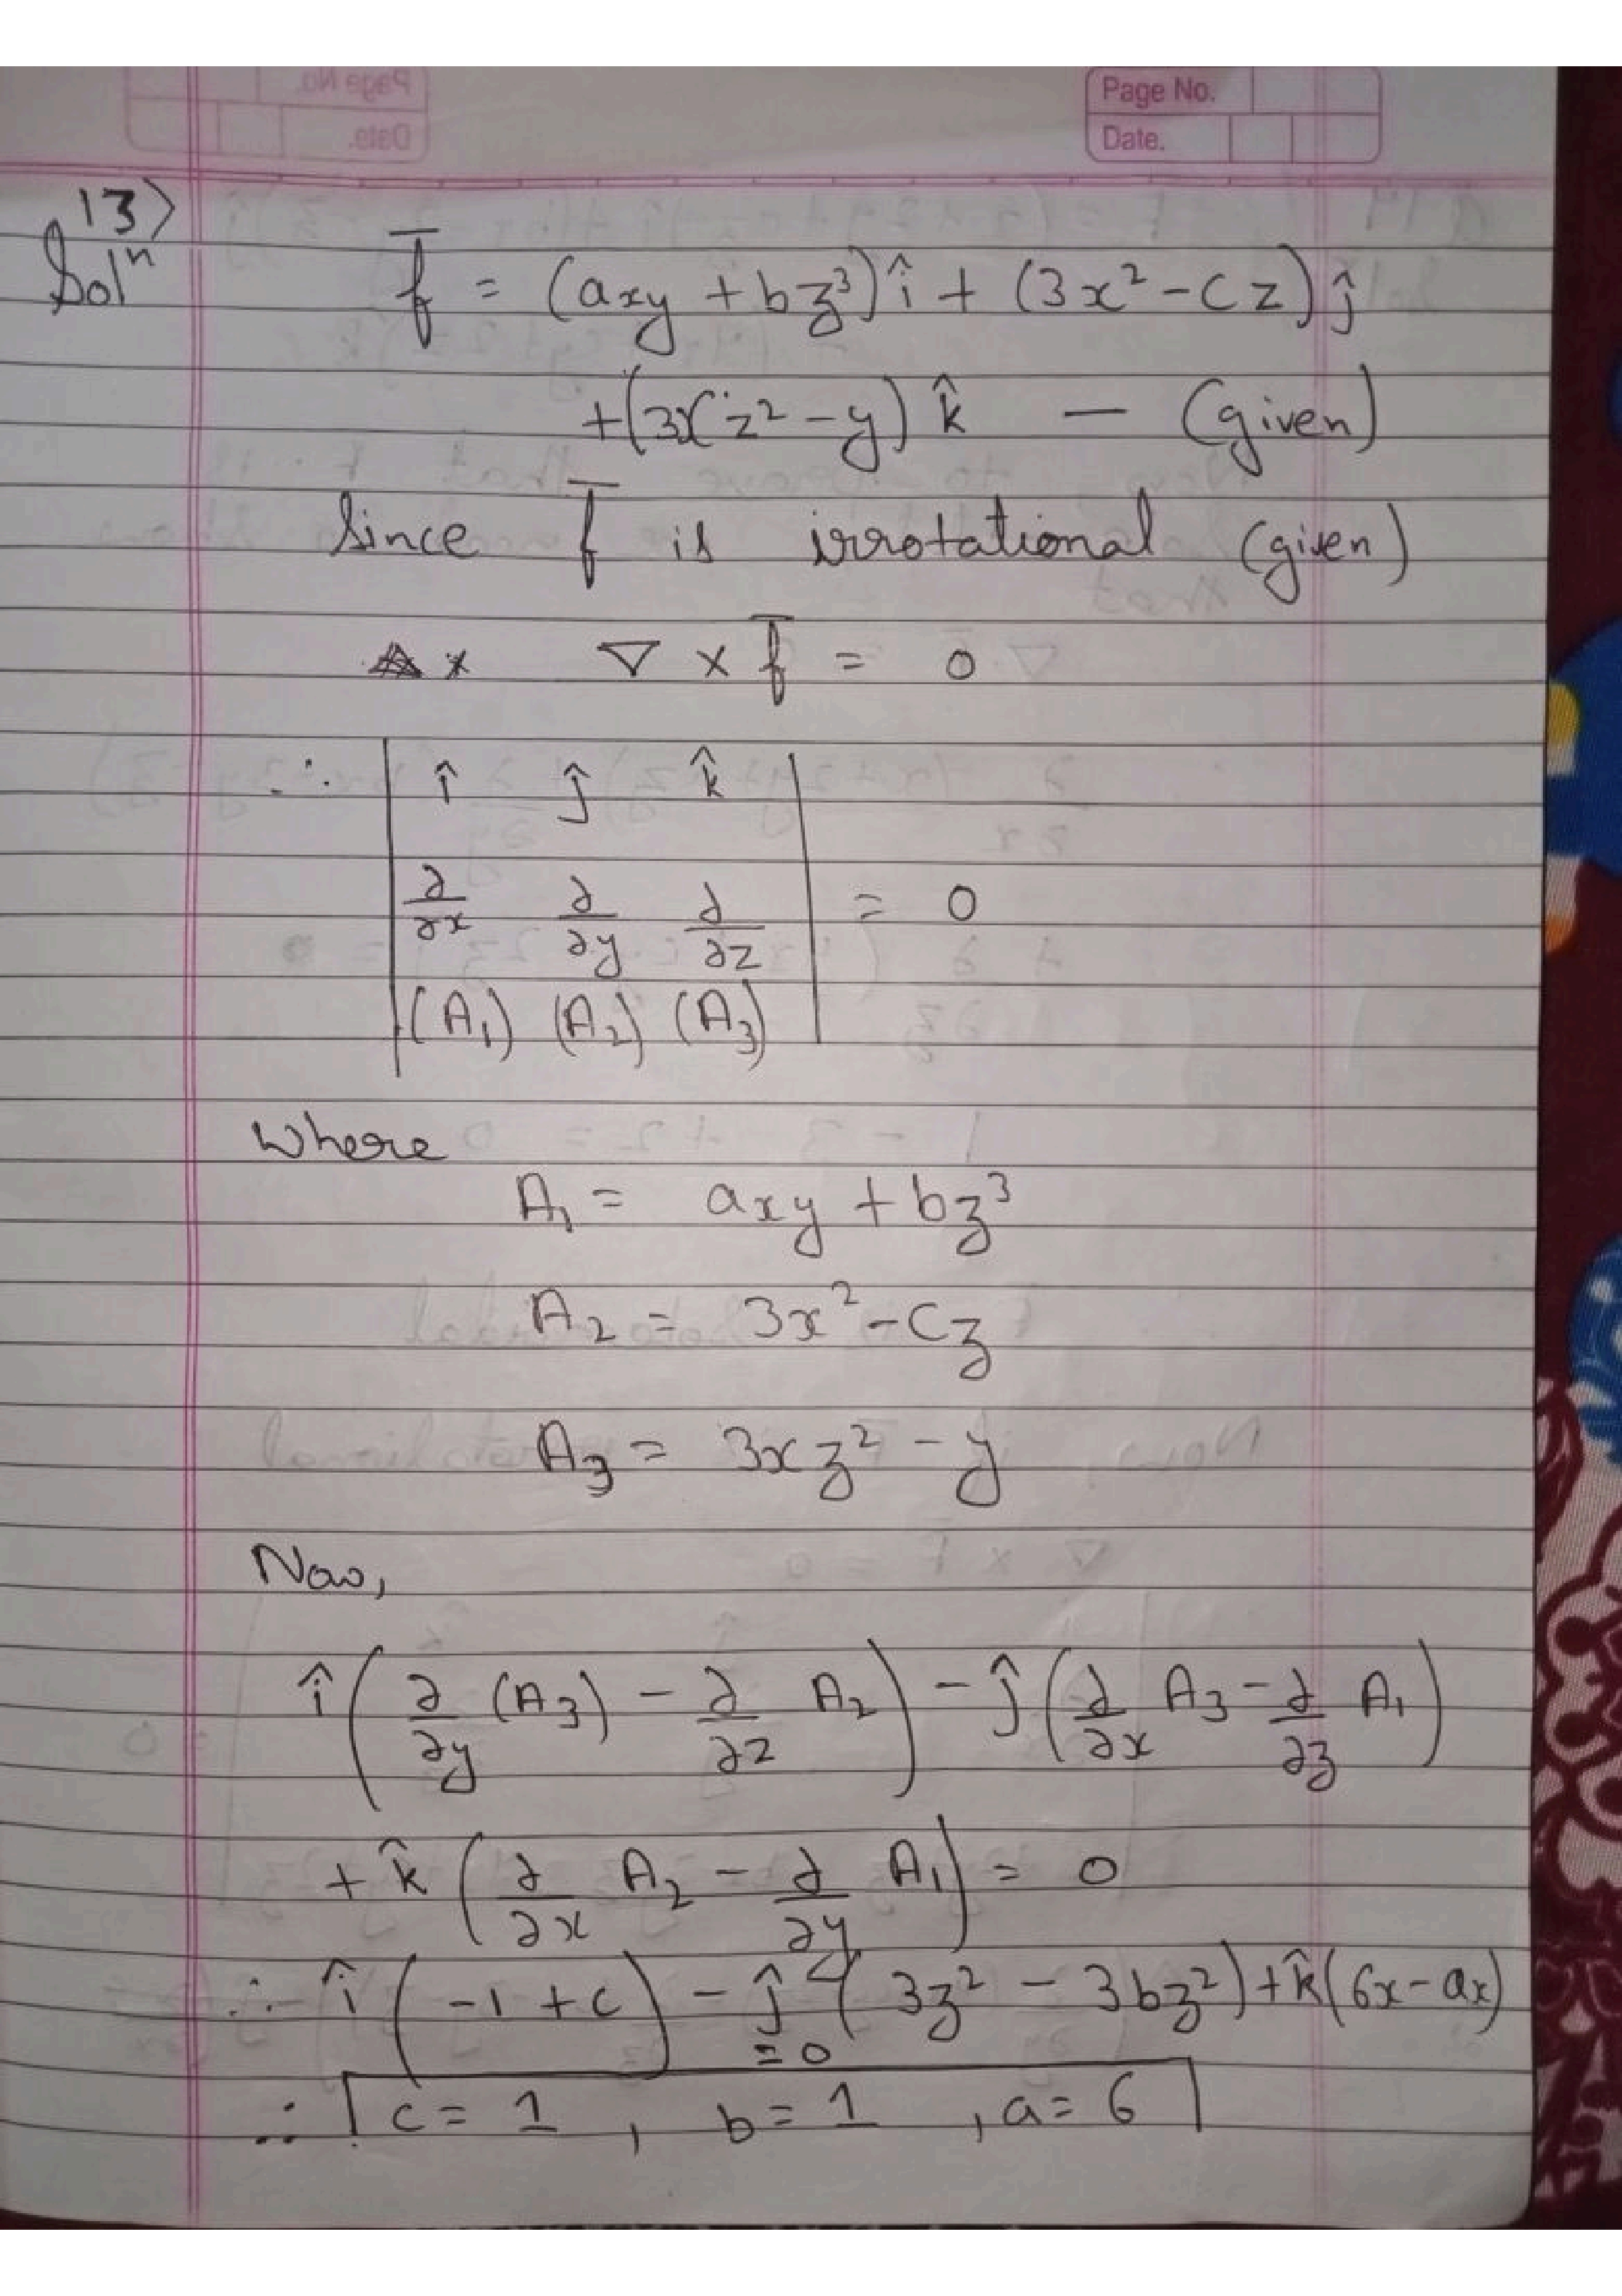 Page No.
Date.
13)
Solⁿ f̅ = (axy + bz³) î + (3x² - cz) ĵ
+ (3xz² - y) k̂ — (given)
Since f̅ is irrotational (given)
∇ × f̅ = 0
∴ | î ĵ k̂ |
| ∂/∂x ∂/∂y ∂/∂z | = 0
| (A₁) (A₂) (A₃) |
Where
A₁ = axy + bz³
A₂ = 3x² - cz
A₃ = 3xz² - y
Now,
î ( ∂/∂y (A₃) - ∂/∂z A₂ ) - ĵ ( ∂/∂x A₃ - ∂/∂z A₁ )
+ k̂ ( ∂/∂x A₂ - ∂/∂y A₁ ) = 0
∴ î ( -1 + c ) - ĵ ( 3z² - 3bz² ) + k̂ ( 6x - ax )
= 0
∴ c = 1 , b = 1 , a = 6